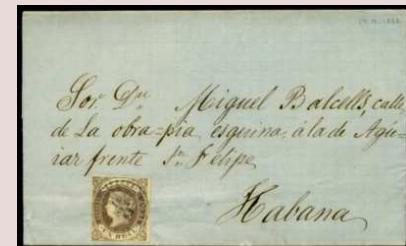 Sor. Dn. Miguel Balcells, calle
de La obra=pia, esquina, á la de Agu=
iar frente Sn. Felipe
Habana